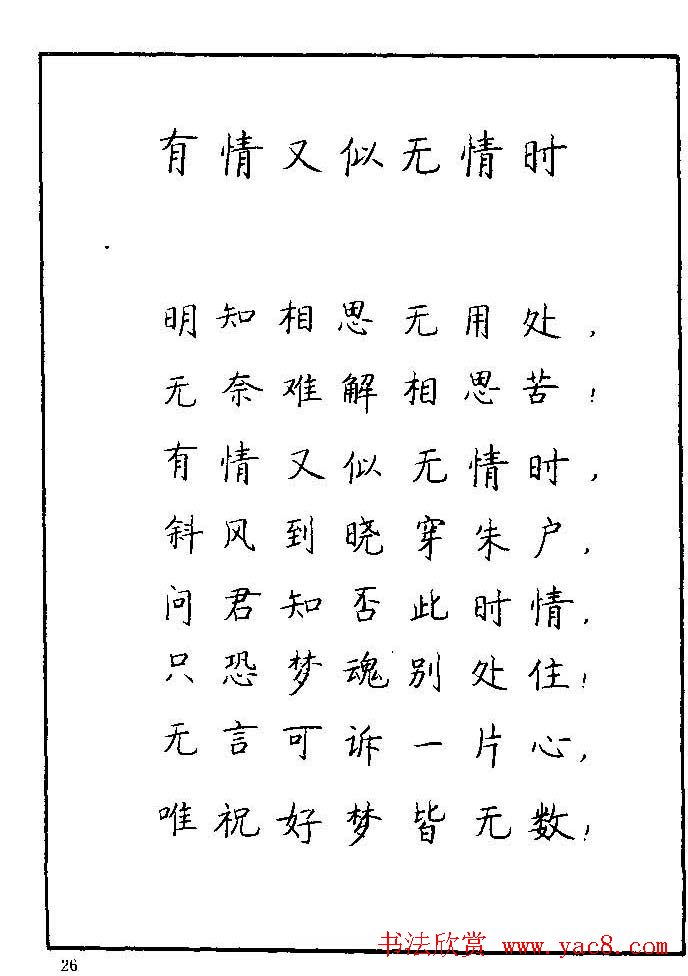 有情又似无情时
明知相思无用处,
无奈难解相思苦!
有情又似无情时,
斜风到晓穿朱户,
问君知否此时情,
只恐梦魂别处住!
无言可诉一片心,
唯祝好梦皆无数!
26
书法欣赏 www.yac8.com